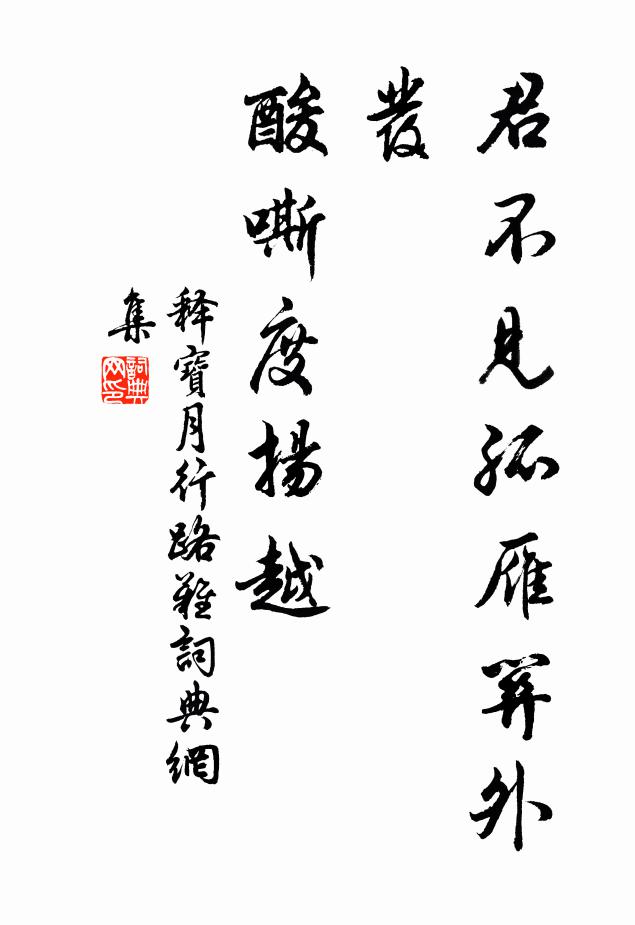 君不見孤雁關外
發
酸嘶度揚越
释寶月行路難詞典網
集
詞典
网印